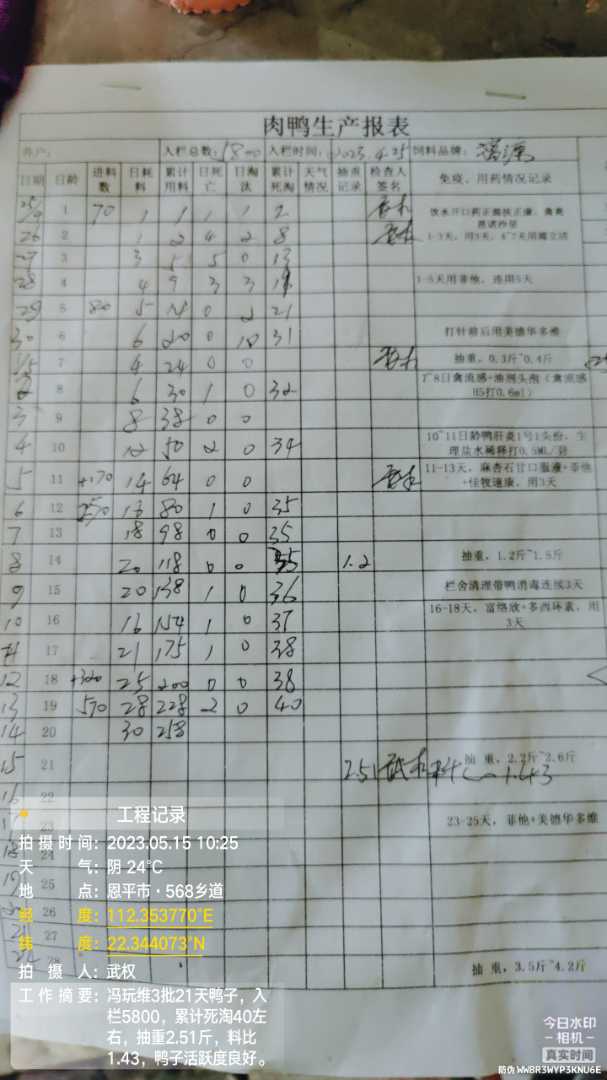 肉鸭生产报表
养户: 入栏总数: 5800 入栏时间: 2023.4.25 饲料品牌:
日期 日龄 进料数 日耗料 累计用料 日死亡 日淘汰 累计死淘 天气情况 抽重记录 检查人签名 免疫、用药情况记录
25/4 1 70 1 1 1 1 2 饮水开口药正菌扶正康,禽奥
26 2 1 2 4 2 8 1-3天,用3天,
27 3 3 5 5 0 13
28 4 4 9 3 3 19 1-5天用菲他,连用5天
29 5 80 5 14 0 2 21
30 6 6 20 0 10 31 打针前后用美德华多维
1/5 7 4 24 0 0 抽重,0.3斤~0.4斤
2 8 6 30 1 0 32 7~8日禽流感+油剂头孢(禽流感H5打0.6ml)
3 9 8 38 0 0
4 10 12 50 2 0 34 10~11日龄鸭肝炎1号1头份,生理盐水稀释打0.5ML/羽
5 11 +170 14 64 0 0 11-13天,麻杏石甘口服液+菲他+佳牧速康,用3天
6 12 250 16 80 1 0 35
7 13 18 98 0 0 35
8 14 20 118 0 0 35 1.2 抽重,1.2斤~1.5斤
9 15 20 138 1 0 36 栏舍清理带鸭消毒连续3天
10 16 16 154 1 0 37 16-18天,富络欣+多西环素,用3天
11 17 21 175 1 0 38
12 18 +320 25 200 0 0 38
13 19 570 28 228 2 0 40
14 20 30 258
15 21 2.51 1.43 抽重,2.2斤~2.6斤
16 22
17 23 23-25天,菲他+美德华多维
18 24
19 25
26
21 27
28 抽重,3.5斤~4.2斤
工程记录
拍摄时间: 2023.05.15 10:25
天气: 阴 24℃
地点: 恩平市·568乡道
经度: 112.353770°E
纬度: 22.344073°N
拍摄人: 武权
工作摘要: 冯玩维3批21天鸭子,入
栏5800,累计死淘40左
右,抽重2.51斤,料比
1.43,鸭子活跃度良好。
今日水印
-相机-
真实时间
防伪 WWBR3WYP3KNU6E